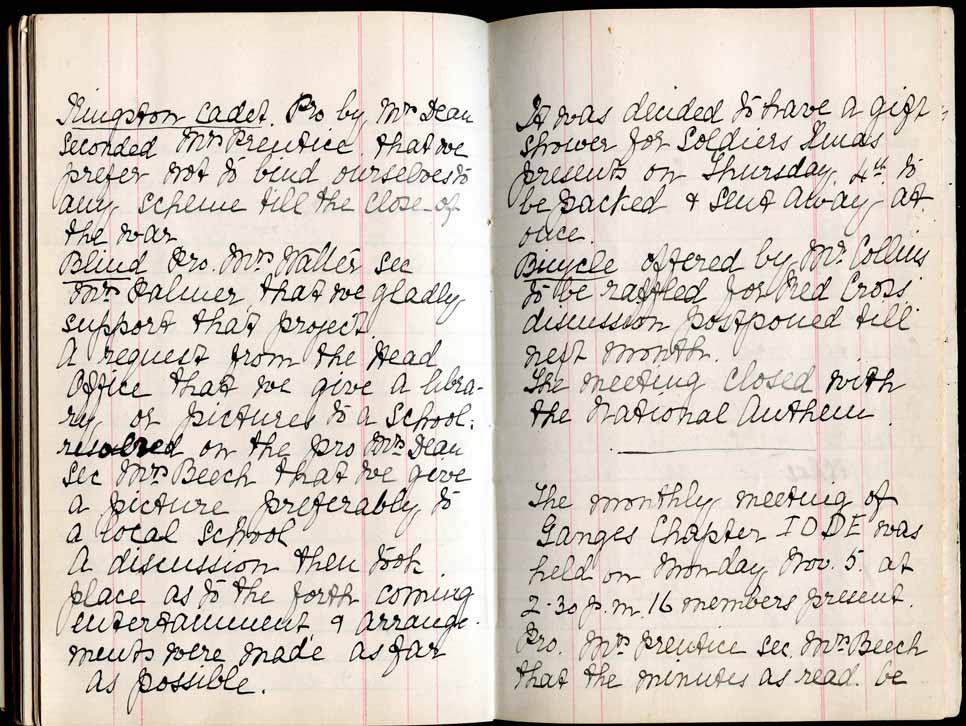 Kingston Cadet. Pro by Mrs Dean
Seconded Mrs Prentice that we
prefer not to bind ourselves to
any scheme till the close of
the war
Blind Pro. Mrs Walter Sec
Mrs Palmer, that we gladly
support that project
A request from the Head
Office that we give a libra-
ry, or pictures to a school.
resolved on the pro Mrs Dean
sec Mrs Beech that we give
a picture preferably to
a local school
A discussion then took
place as to the forth coming
entertainment & arrange-
ments were made as far
as possible.
It was decided to have a gift
shower for Soldiers Xmas
presents on Thursday, 4th to
be packed & sent away at
once.
Bicycle offered by Mr Collins
to be raffled for Red Cross
discussion postponed till
next month.
The meeting closed with
the National Anthem

The monthly meeting of
Ganges Chapter I O D E was
held on Monday Nov. 5. at
2-30 p.m. 16 members present.
Pro. Mrs Prentice sec. Mrs Beech
that the minutes as read. be